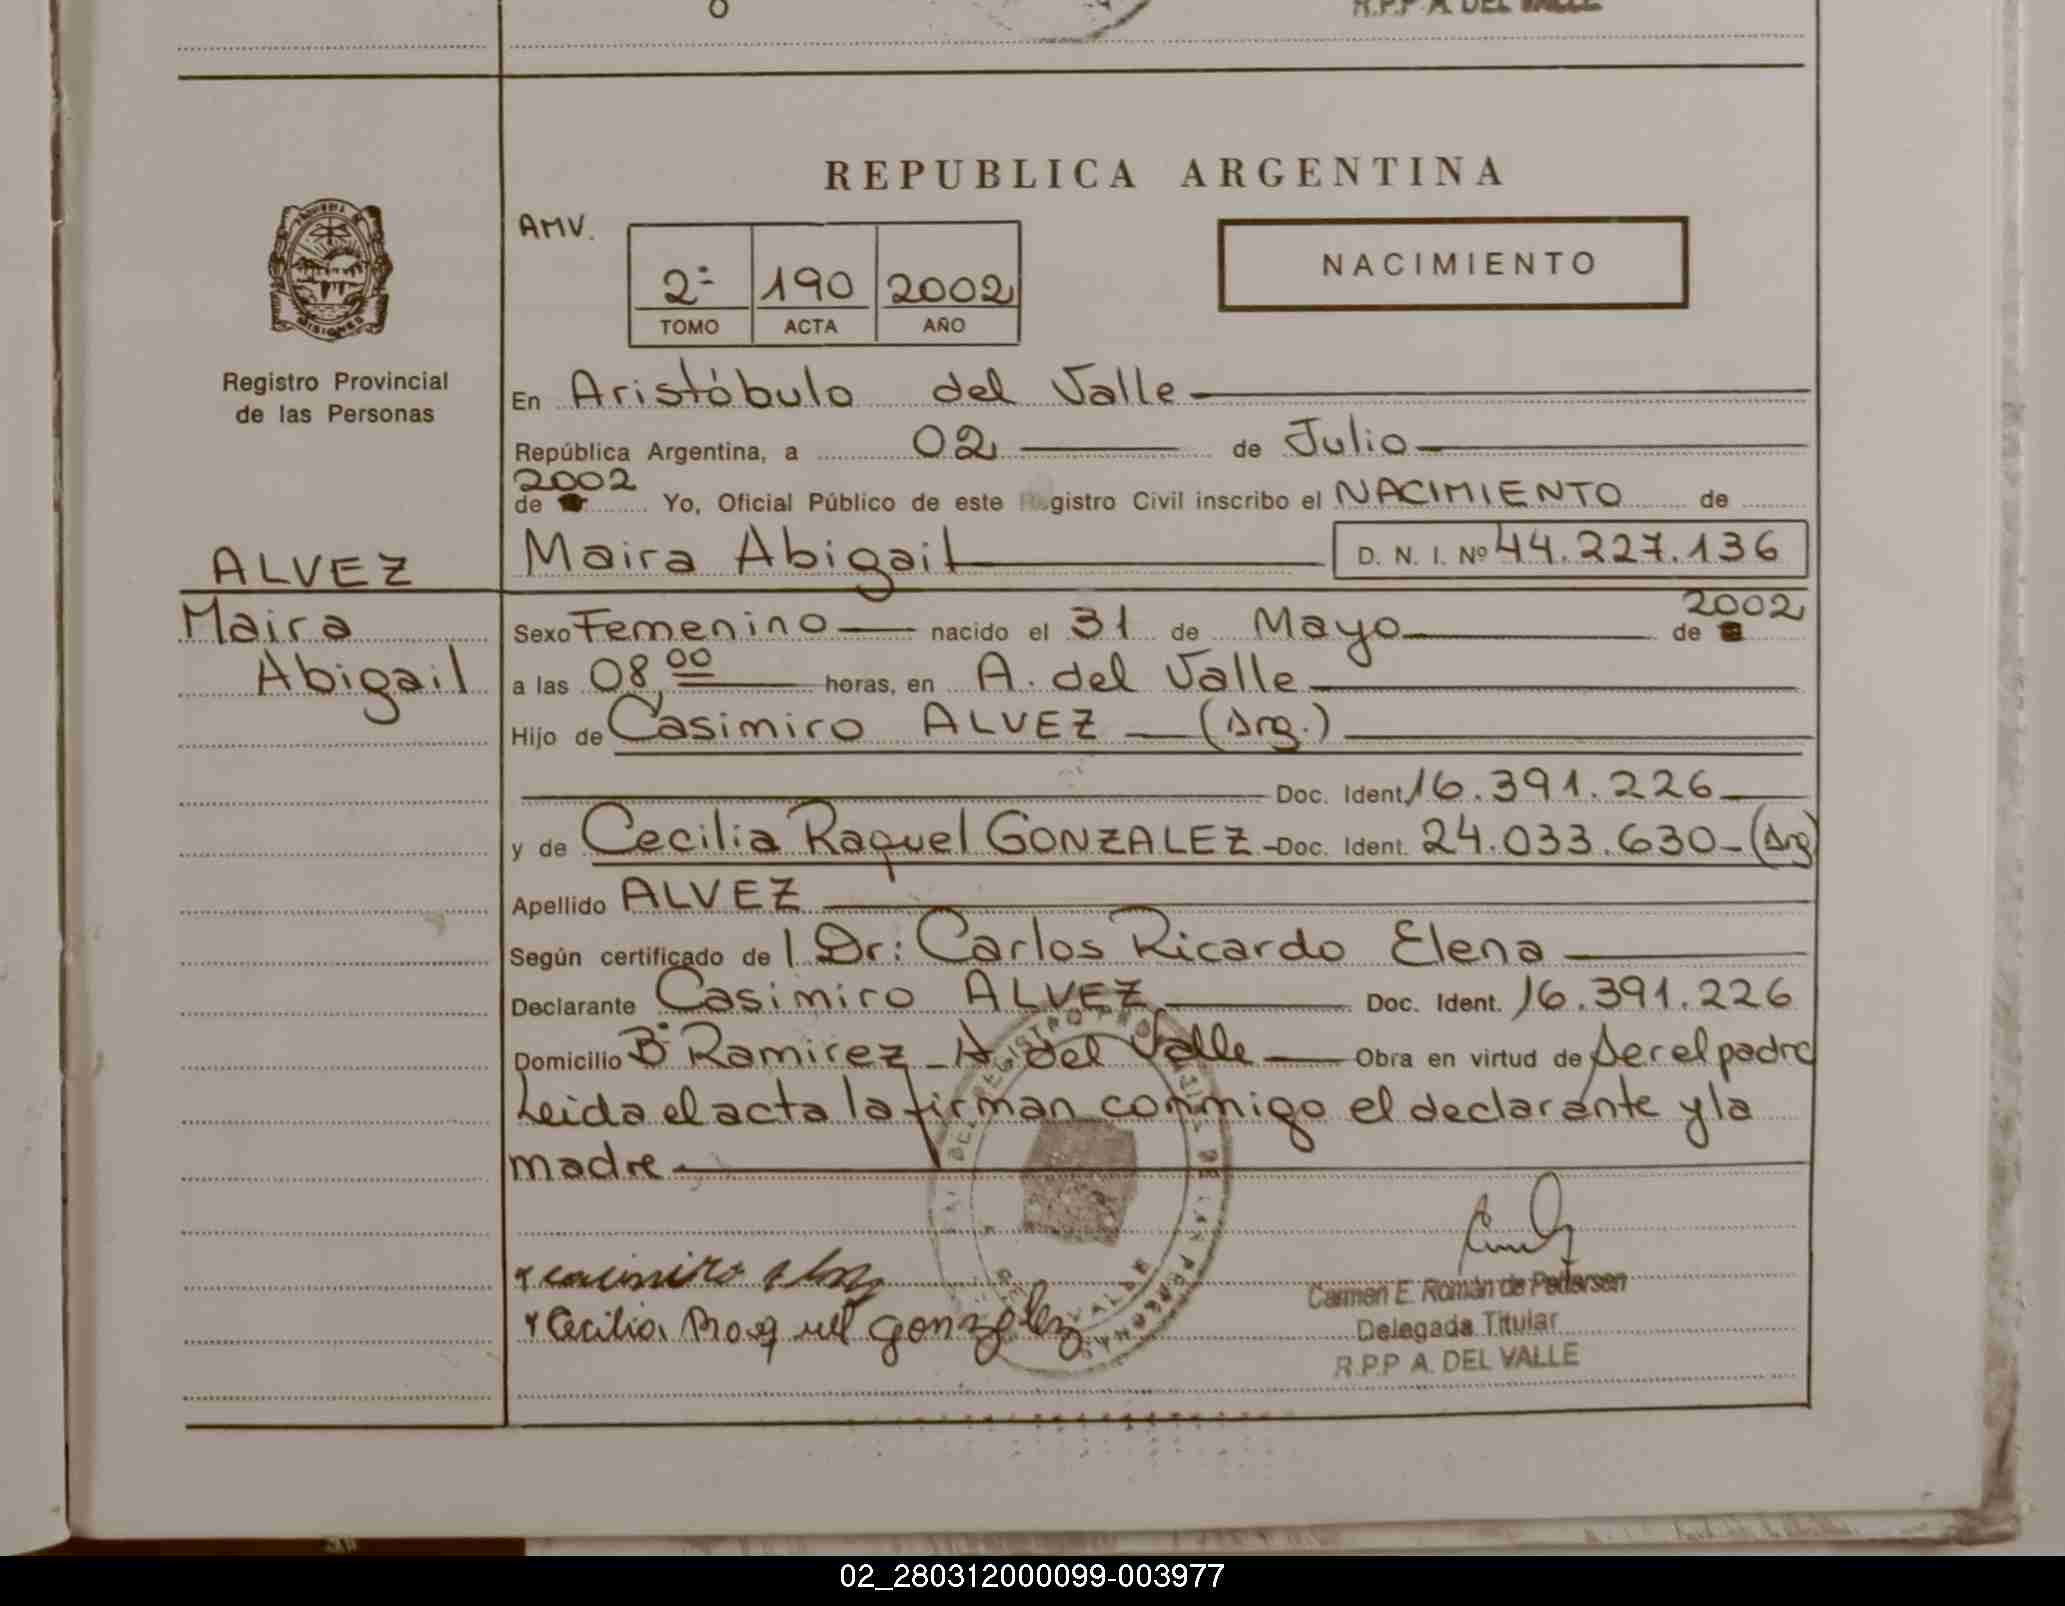 R.P.P A. DEL VALLE
REPUBLICA ARGENTINA
AMV.
2º 190 2002
TOMO ACTA AÑO
NACIMIENTO
MISIONES
Registro Provincial
de las Personas
En Aristóbulo del Valle
República Argentina, a 02 de Julio
2002
de Yo, Oficial Público de este Registro Civil inscribo el NACIMIENTO de
ALVEZ
Maira Abigail D. N. I. Nº 44.227.136
Maira
Abigail
2002
Sexo Femenino nacido el 31 de Mayo de
a las 08,00 horas, en A. del Valle
Hijo de Casimiro ALVEZ (Arg.)
Doc. Ident. 16.391.226
y de Cecilia Raquel GONZALEZ - Doc. Ident. 24.033.630 - (Arg)
Apellido ALVEZ
Según certificado de l Dr: Carlos Ricardo Elena
Declarante Casimiro ALVEZ Doc. Ident. 16.391.226
Domicilio Bº Ramirez - A del Valle Obra en virtud de ser el padre
Leida el acta la firman conmigo el declarante y la
madre
casimiro alvez
Cecilia Raquel gonzalez
Carmen E. Román de Pedersen
Delegada Titular
R.P.P A. DEL VALLE
02_280312000099-003977